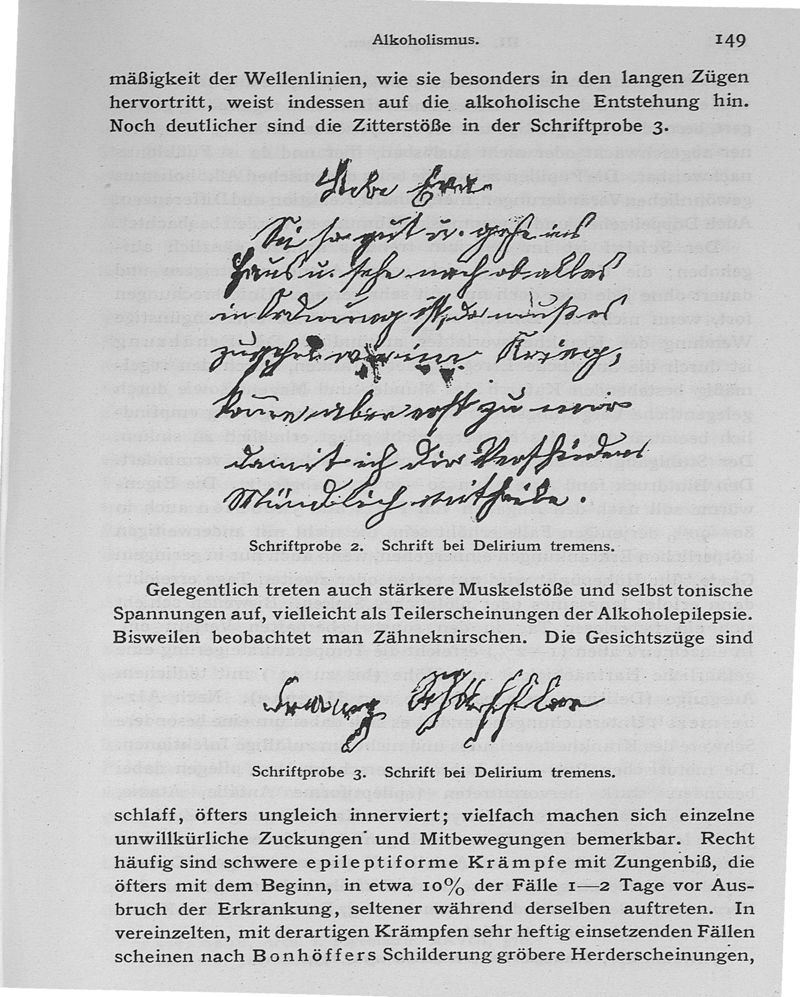 Alkoholismus. 149
mäßigkeit der Wellenlinien, wie sie besonders in den langen Zügen
hervortritt, weist indessen auf die alkoholische Entstehung hin.
Noch deutlicher sind die Zitterstöße in der Schriftprobe 3.
Liebe Frau
Sei so gut u. gehe ins
Haus u. sehe nach ob alles
in Ordnung ist, da muß es
Krieg,
aber erst zu mir
damit ich dir Verschiedens
Mündlich mittheile.
Schriftprobe 2. Schrift bei Delirium tremens.
Gelegentlich treten auch stärkere Muskelstöße und selbst tonische
Spannungen auf, vielleicht als Teilerscheinungen der Alkoholepilepsie.
Bisweilen beobachtet man Zähneknirschen. Die Gesichtszüge sind
Schriftprobe 3. Schrift bei Delirium tremens.
schlaff, öfters ungleich innerviert; vielfach machen sich einzelne
unwillkürliche Zuckungen und Mitbewegungen bemerkbar. Recht
häufig sind schwere epileptiforme Krämpfe mit Zungenbiß, die
öfters mit dem Beginn, in etwa 10% der Fälle 1—2 Tage vor Aus-
bruch der Erkrankung, seltener während derselben auftreten. In
vereinzelten, mit derartigen Krämpfen sehr heftig einsetzenden Fällen
scheinen nach Bonhöffers Schilderung gröbere Herderscheinungen,